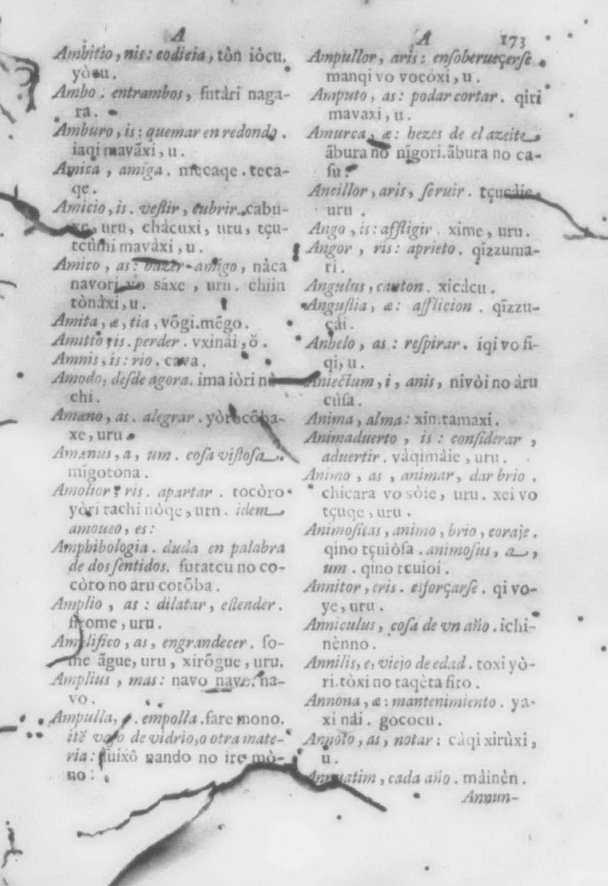 A
Ambitio, nis: codicia, tôn iôcu.
yòcu.
Ambo. entrambos, futári naga-
ra.
Amburo, is: quemar en redondo.
iaqi mavàxi, u.
Amica, amiga. mecaqe. teca-
qe.
Amicio, is. vestir, cubrir. cabu-
xe, uru, chàcuxi, uru, tçu-
tçumi mavàxi, u.
Amico, as: hazer amigo, nàca
navori vo sáxe, uru. chiin
tònàxi, u.
Amita, æ, tia, vōgi. mēgo.
Amitto, is. perder. vxinái, ŏ.
Amnis, is: rio. cava.
Amodo, desde agora. ima iòri nò
chi.
Amæno, as. alegrar. yòrocōba-
xe, uru.
Amænus, a, um. cosa vistosa.
migotona.
Amolior, ris. apartar. tocòro
yòri tachi nòqe, uru. idem
amoueo, es:
Amphibologia. duda en palabra
de dos sentidos. futatcu no co-
còro no aru cotōba.
Amplio, as: dilatar, estender.
firome, uru.
Amplifico, as, engrandecer. fo-
me āgue, uru, xirōgue, uru.
Amplius, mas: navo navo. na-
vo.
Ampulla, empolla. fare mono.
itē vaso de vidrio, o otra mate-
ria: nando no ire mò-
no:
A 173
Ampullor, aris: ensoberuiçerse
manqi vo vocòxi, u.
Amputo, as: podar cortar. qiri
mavaxi, u.
Amurca, æ: hezes de el azeite
ābura no nigori. ābura no ca-
su.
Ancillor, aris, seruir. tçucáie
uru.
Ango, is: affligir. xime, uru.
Angor, ris: aprieto. qizzuma-
ri.
Angulus, canton. xicácu.
Angustia, æ: afflicion. qīzzu-
cái.
Anhelo, as: respirar. iqi vo fi-
qi, u.
Aniectum, i, anis, nivòi no àru
cùsa.
Anima, alma: xin. tamaxi.
Animaduerto, is: considerar,
aduertir. vàqimáie, uru.
Animo, as, animar, dar brio.
chicara vo sòie, uru. xei vo
tçuqe, uru.
Animositas, animo, brio, coraje.
qino tçuiósa. animosus, a,
um. qino tçuioi.
Annitor, eris. esforçarse. qi vo-
ye, uru.
Anniculus, cosa de vn año. ichi-
nènno.
Annilis, e, viejo de edad. toxi yò-
ri. tòxi no taqèta fito.
Annona, æ: mantenimiento. ya-
xi nái. gococu.
Annoto, as, notar: càqi xirùxi,
u.
Annuatim, cada año. máinèn.
Annun-